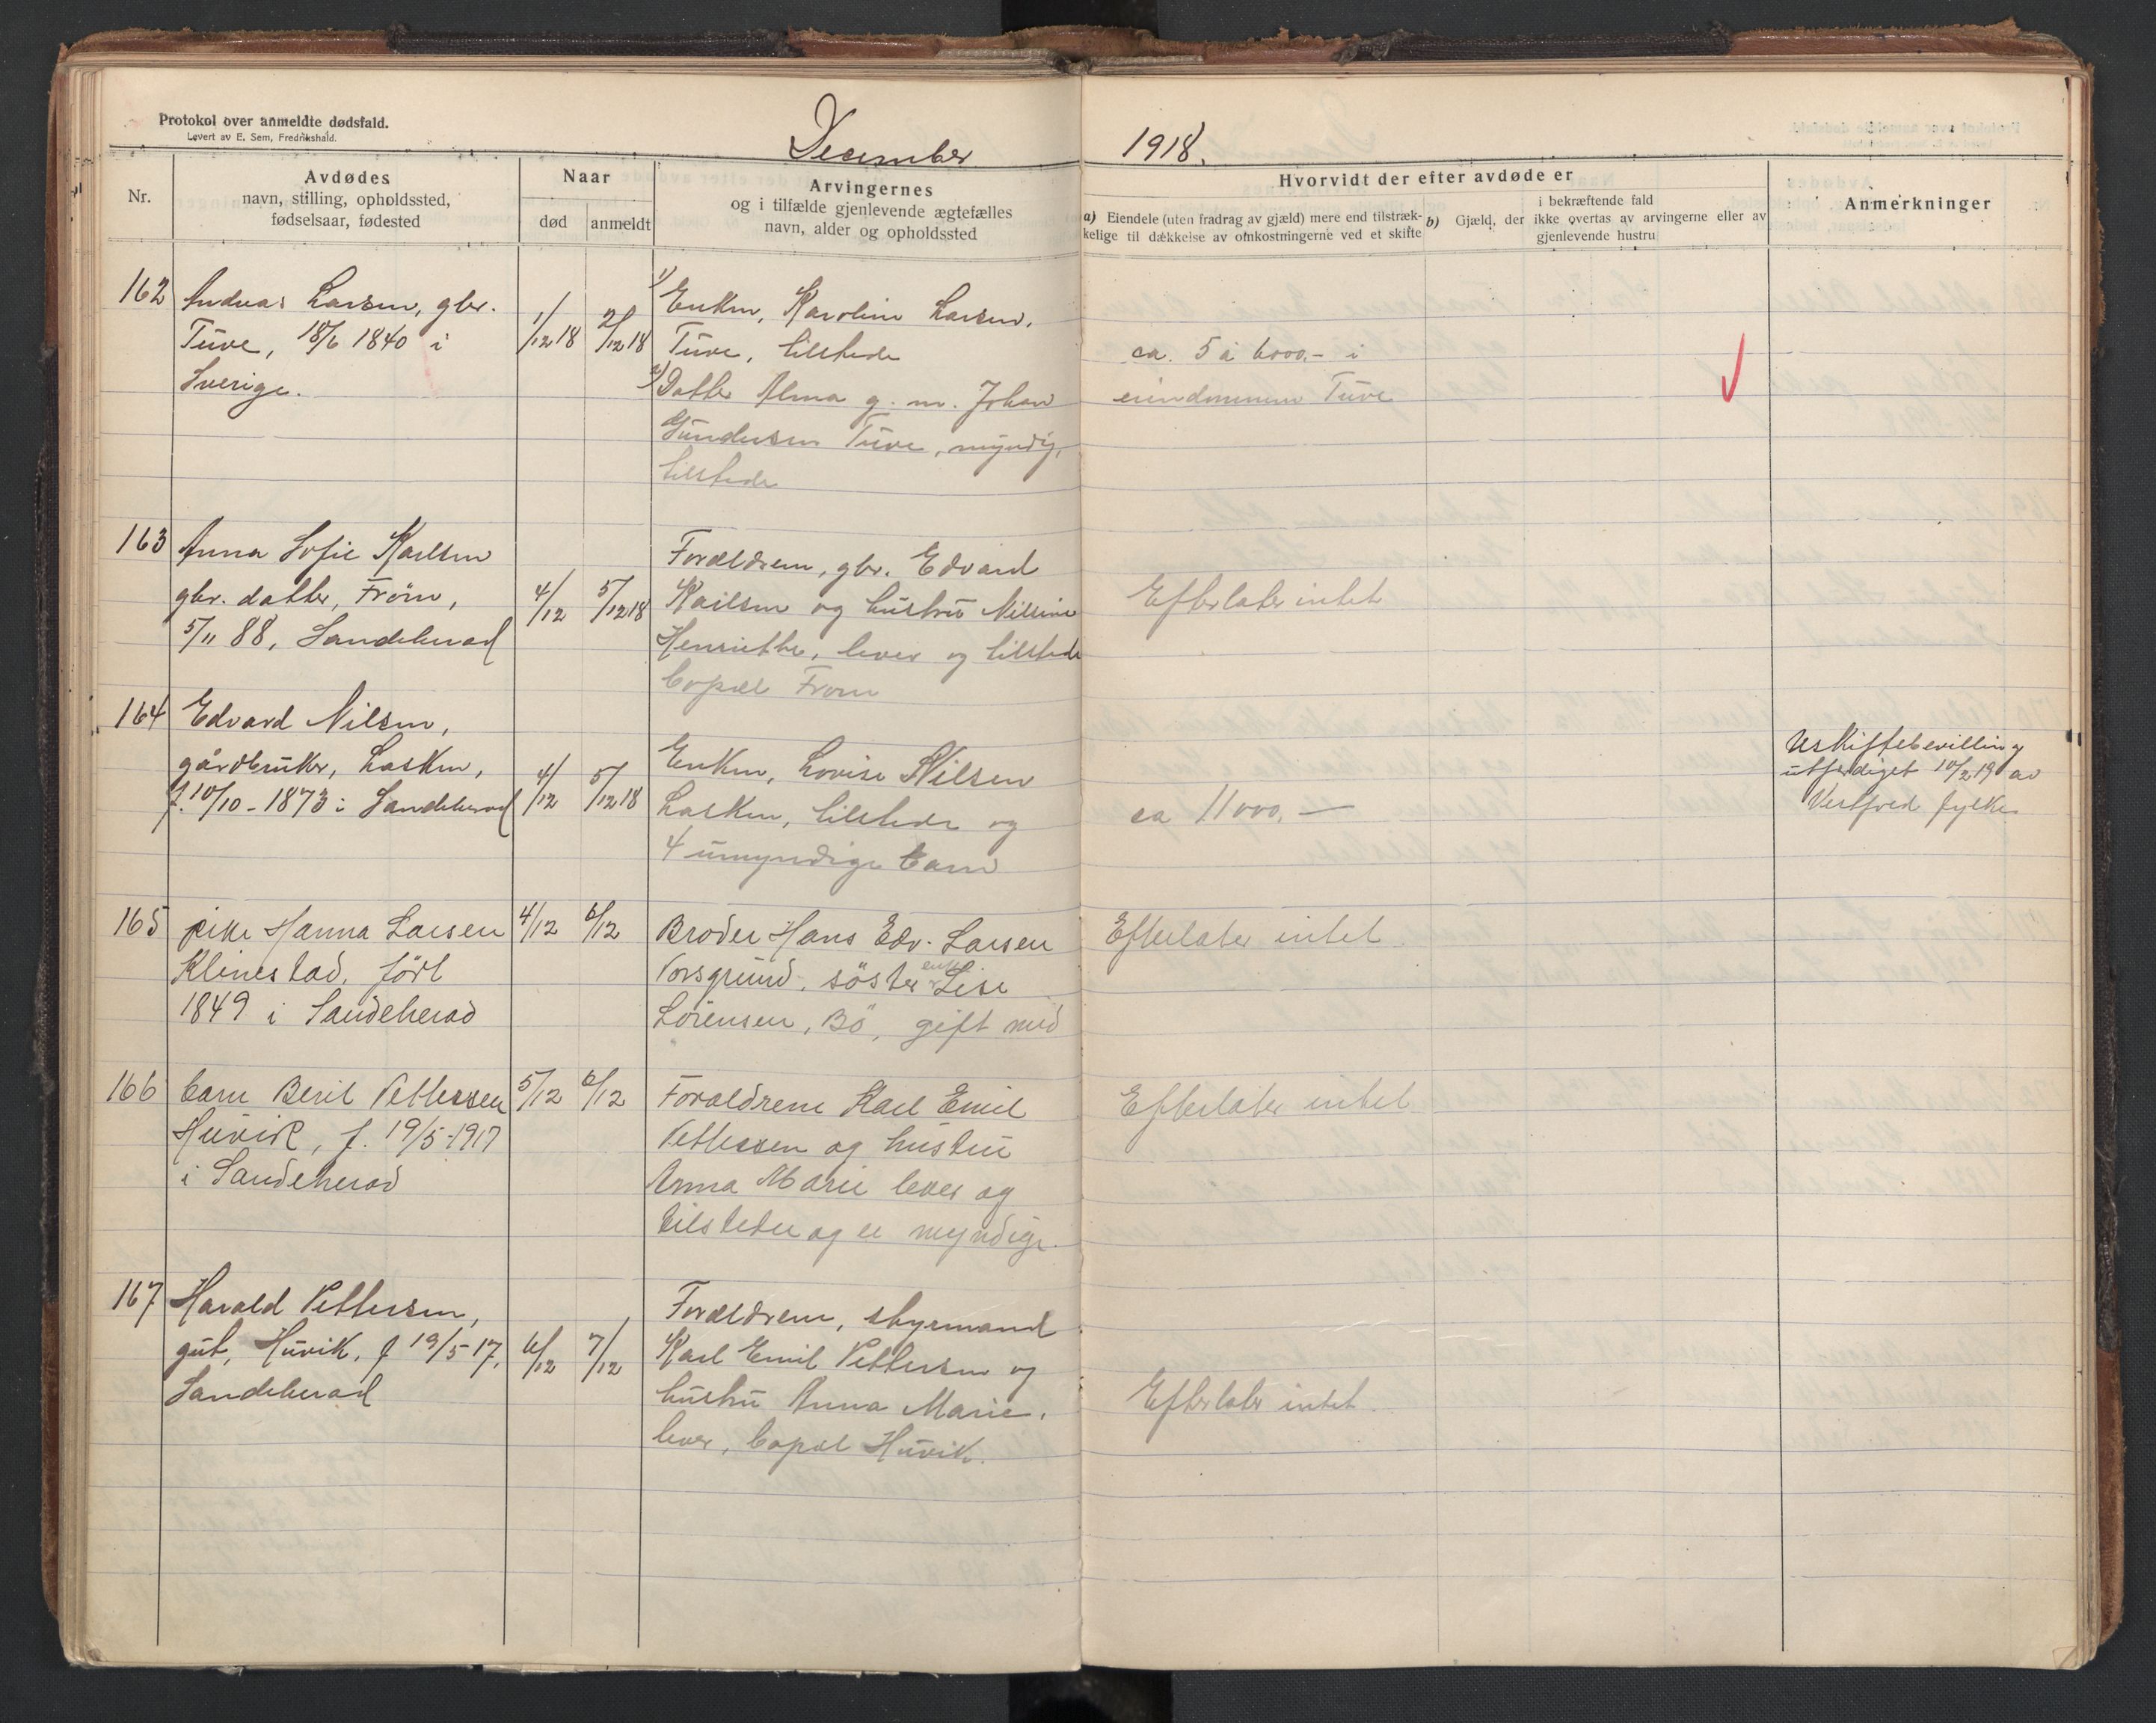 Protokol over anmeldte dødsfald.
Levert av E. Sem, Fredrikshald.
December 1918.
Nr.
Avdødes
navn, stilling, opholdssted,
fødselsaar, fødested
Naar
død
anmeldt
Arvingernes
og i tilfælde gjenlevende ægtefælles
navn, alder og opholdssted
Hvorvidt der efter avdøde er
a) Eiendele (uten fradrag av gjæld) mere end tilstræk-
kelige til dækkelse av omkostningerne ved et skifte
b) Gjæld, der
i bekræftende fald
ikke overtas av arvingerne eller av
gjenlevende hustru
Anmerkninger
162
Andreas Larsen, gbr.
Tuve, 18/6 1840 i
Sverige.
1/12 18
2/12 18
1) Enken, Karoline Larsen,
Tuve, tilstede
2) Datter Alma g. m. Johan
Gundersen Tuve, myndig,
tilstede
ca. 5 à 6000,- i
eiendommen Tuve
163
Anna Sofie Karlsen
gbr. datter, Frøm,
5/11 88, Sandeherad
4/12
5/12 18
Forældrene, gbr. Edvard
Karlsen og hustru Nilsine
Henriette, lever og tilstede
bopæl Frøm
Efterlater intet
164
Edvard Nilsen,
gårdbruker, Lasken,
f. 10/10 - 1873 i Sandeherad
4/12
5/12 18
Enken, Lovise Nilsen
Lasken, tilstede og
4 umyndige barn
ca 11000,-
Uskiftebevilling
utferdiget 10/2 19 av
Vestfold fylke
165
pike Hanna Larsen
Klinestad, født
1849 i Sandeherad
4/12
6/12
Broder Hans Edv. Larsen
Porsgrund, söster enke Lise
Lorensen, Bö, gift med
Efterlater intet
166
barn Beril Pettersen
Huvik, f. 19/5-1917
i Sandeherad
5/12
6/12
Foraldrene Karl Emil
Pettersen og hustru
Anna Marie lever og
tilsteder og er myndige.
Efterlater intet
167
Harald Pettersen,
gut, Huvik, f 19/5-17,
Sandeherad
6/12
7/12
Forældrene, styrmand
Karl Emil Pettersen og
hustru Anna Marie,
lever, bopæl Huvik.
Efterlater intet.